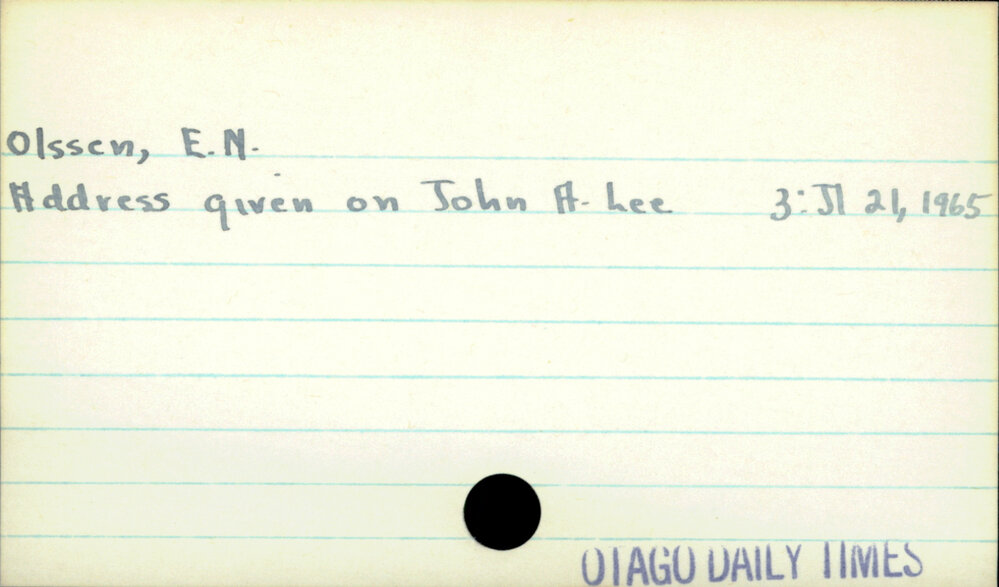 Olssen, E.N.
Address given on John A. Lee 3: Jl 21, 1965
OTAGO DAILY TIMES